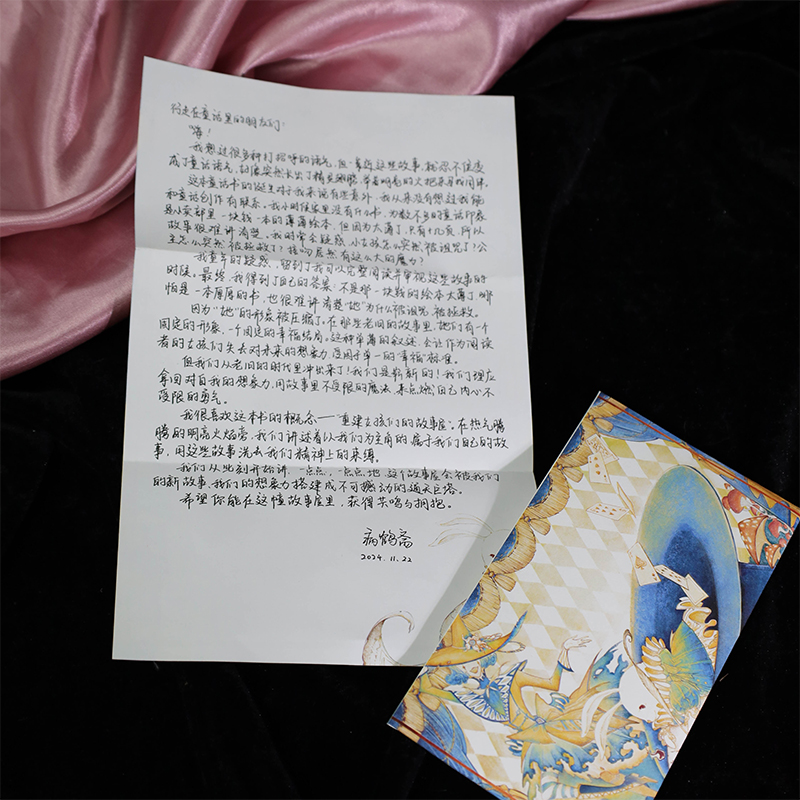 行走在童话里的朋友们：
“嗨！”
我想过很多种打招呼的语气，但一靠近这些故事，就不
成了童话语气，
这本童话书的诞生对于我来说有些意外，我从来没有想过我能
和童话创作有联系。我小时候家里没有什么书，为数不多的童话印象
是小卖部里一块钱一本的薄薄绘本，但因为太薄了，只有十几页，所以
故事很难讲清楚。我时常会疑惑，小女孩怎么突然被诅咒了？公
主怎么突然被拯救了？接吻居然有这么大的魔力？
我童年的疑惑，留到了我可以完整阅读并审视这些故事的
时候。最终，我得到了自己的答案：不是那一块钱的绘本太薄了，哪
怕是一本厚厚的书，也很难讲清楚“她”为什么被诅咒、被拯救。
因为“她”的形象被压缩了。在那些老旧的故事里，她们有一个
固定的形象，一个固定的幸福结局。这种单薄的叙述，会让作为阅读
者的女孩们失去对未来的想象力，囿困于单一的“幸福”标准。
但我们从老旧的时代里冲出来了！我们是崭新的！我们理应
拿回对自我的想象力，用故事里不受限的魔法，来点燃自己内心不
受限的勇气。
我很喜欢这本书的概念——“重建女孩们的故事屋”。在热气腾
腾的明亮火焰旁，我们讲述着以我们为主角的、属于我们自己的故
事，用这些故事洗去我们精神上的束缚。
我们从此刻开始讲，一点点，一点点地，这个故事屋会被我们
的新故事、我们的想象力搭建成不可撼动的通天巨塔。
希望你能在这幢故事屋里，获得共鸣与拥抱。
病鹤斋
2024.11.22